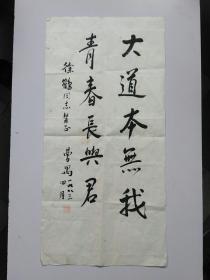 大道本無我
青春長與君
徐鶴同志鑒正
曹禺 一九八三
四月